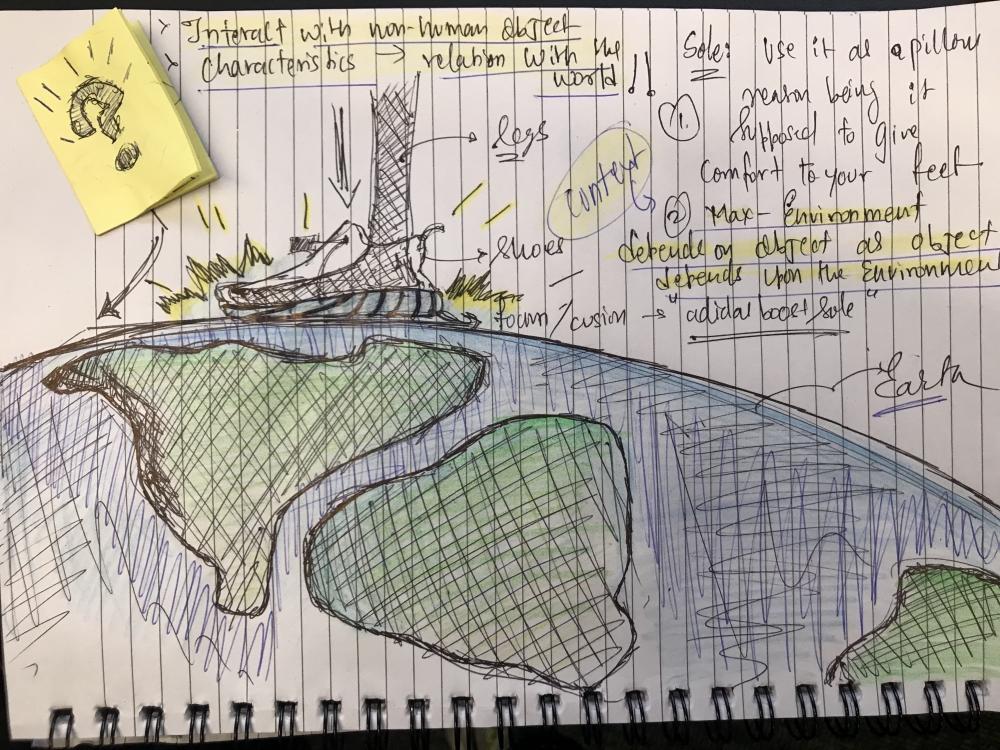 > Interact with non-human object
> characteristics → relation with the
world !!
Sole: Use it as a pillow
1. reason being it
supposed to give
comfort to your feet
Context
2 Max- Environment
depends on object as object
depends upon the Environment
Legs
Shoes
foam / cusion → "adidas boost sole"
Earth
?